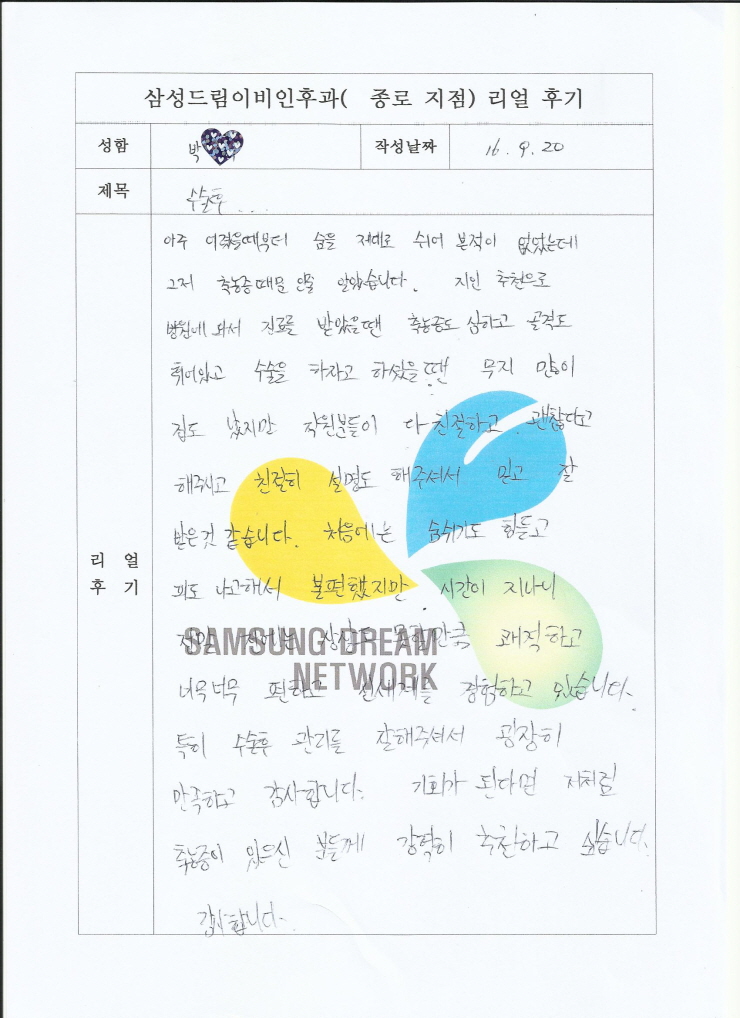 삼성드림이비인후과( 종로 지점) 리얼 후기
성함 박 작성날짜 16. 9. 20
제목 수술후...
리 얼
후 기
아주 어렸을때부터 숨을 제대로 쉬어 본적이 없었는데
그저 축농증때문 인줄 알았습니다. 지인 추천으로
병원에 와서 진료를 받았을땐 축농증도 심하고 골격도
휘어있고 수술을 하자고 하셨을땐 무지 많이
겁도 났지만 직원분들이 다 친절하고 괜찮다고
해주시고 친절히 설명도 해주셔서 믿고 잘
받은것 같습니다. 처음에는 숨쉬기도 힘들고
피도 나고해서 불편했지만 시간이 지나니
상상도 못할만큼 쾌적하고
너무너무 편하고 신세계를 경험하고 있습니다.
특히 수술후 관리를 잘해주셔서 굉장히
만족하고 감사합니다. 기회가 된다면 저처럼
축농증이 있으신 분들께 강력히 추천하고 싶습니다.
감사합니다.
SAMSUNG DREAM
NETWORK